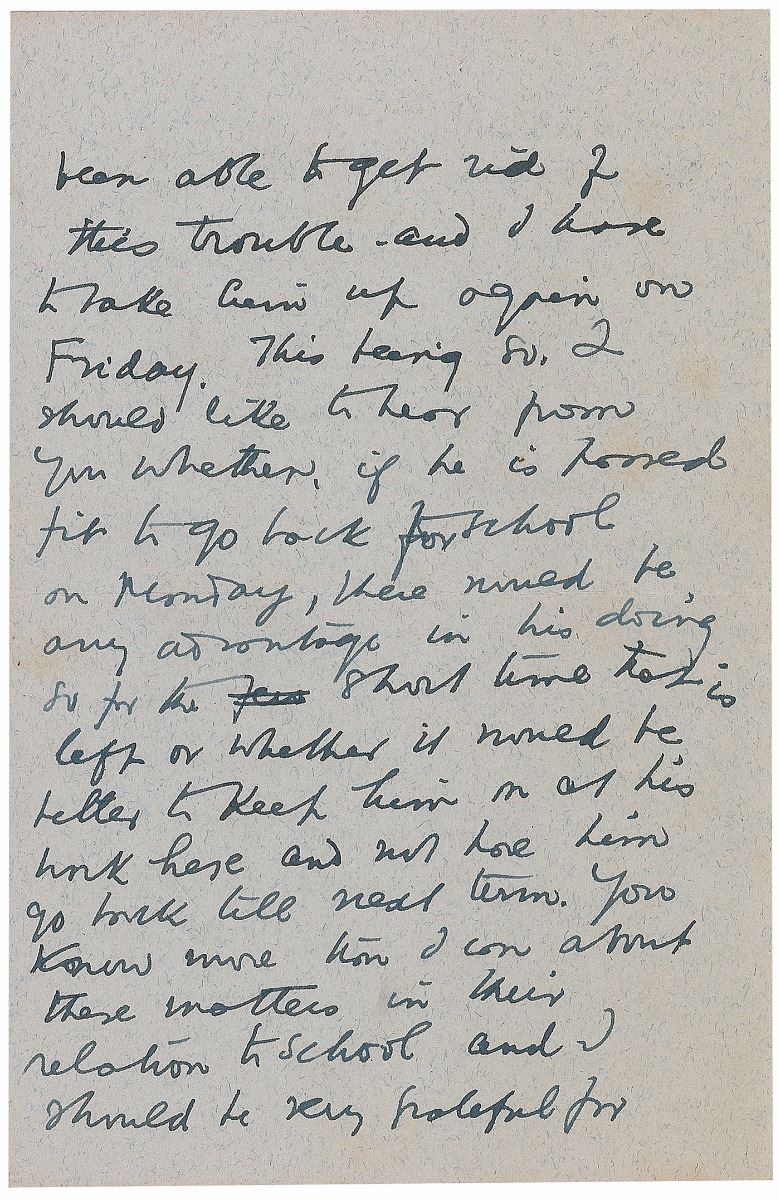 been able to get rid of
this trouble - and I have
to take him up again on
Friday. This being so, I
should like to hear from
you whether, if he is passed
fit to go back for school
on Monday, there would be
any advantage in his doing
so for the few short time that is
left or whether it would be
better to keep him on at his
work here and not have him
go back till next term. You
know more than I can about
these matters in their
relation to school and I
should be very grateful for